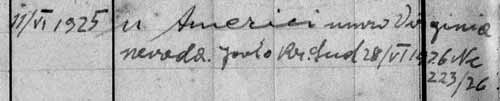 11/VI 1925 u Americi umro Virginia
nevada. javio Kr. Sud 28/VI 1926 Nr
223/26